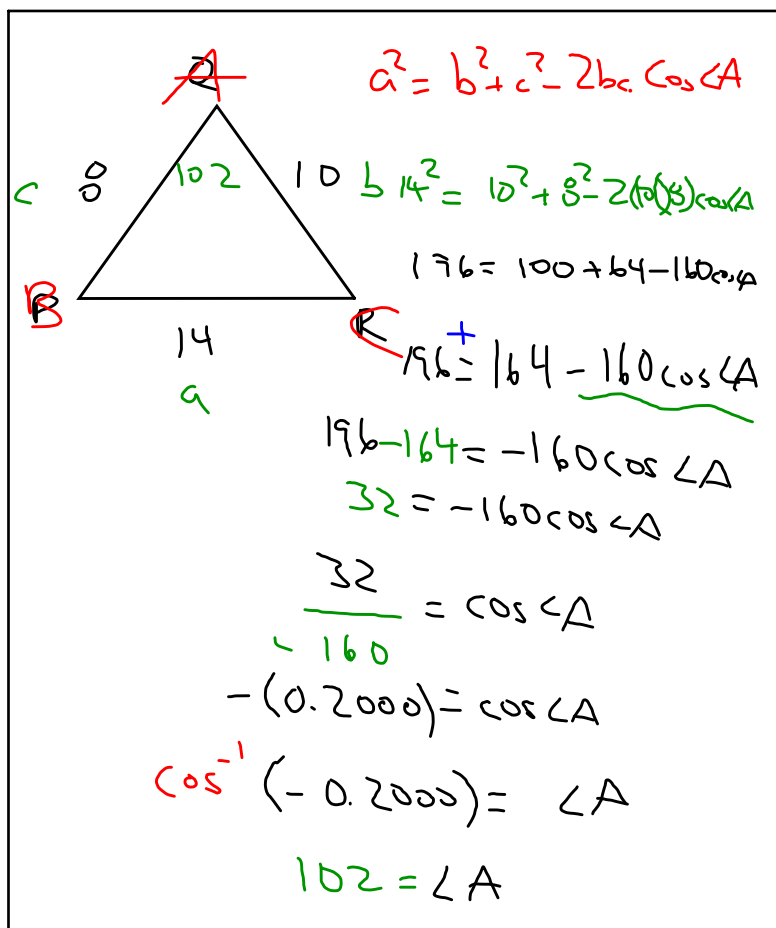 A
a² = b² + c² - 2bc. Cos∠A
c 8 102 10 b 14² = 10² + 8² - 2(10)(8)cos∠A
196 = 100 + 64 - 160cos∠A
B R
14
a
+
196 = 164 - 160cos∠A
196 - 164 = -160cos∠A
32 = -160cos∠A
32
- 160
= cos∠A
-(0.2000) = cos∠A
cos⁻¹ (-0.2000) = ∠A
102 = ∠A